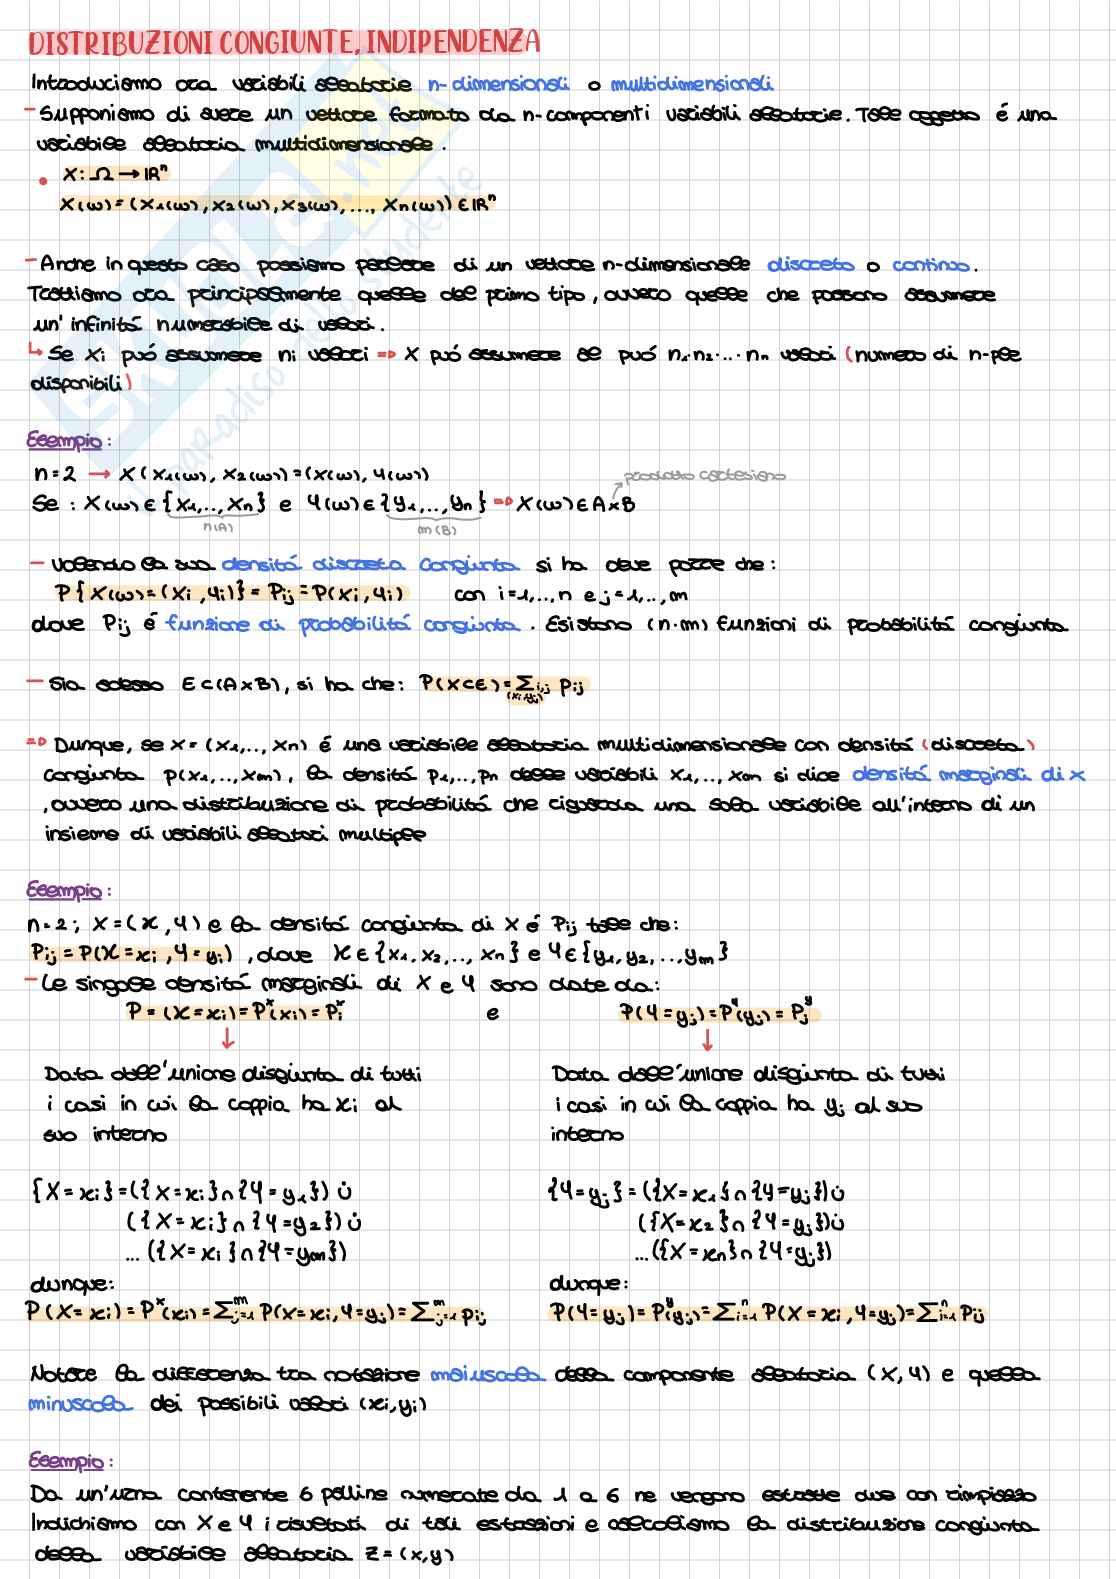 DISTRIBUZIONI CONGIUNTE, INDIPENDENZA
Introduciamo ora variabili aleatorie n-dimensionali o multidimensionali
- Supponiamo di avere un vettore formato da n-componenti variabili aleatorie. Tale oggetto é una
variabile aleatoria multidimensionale.
• X: Ω → ℝⁿ
X(ω) = (X₁(ω), X₂(ω), X₃(ω), ..., Xn(ω)) ∈ ℝⁿ
- Anche in questo caso possiamo parlare di un vettore n-dimensionale discreto o continuo.
Trattiamo ora principalmente quelle del primo tipo, ovvero quelle che possono assumere
un' infinitá numerabile di valori.
↳ Se Xi puó assumere ni valori => X puó assumere al piú n₁·n₂·...·nn valori (numero di n-ple
disponibili)
Esempio:
n=2 → X(X₁(ω), X₂(ω)) = (X(ω), Y(ω))
prodotto cartesiano
Se: X(ω) ∈ {X₁,..,Xn} e Y(ω) ∈ {y₁,..,yn} => X(ω) ∈ A×B
n(A) m(B)
- Volendo la sua densitá discreta congiunta si ha deve porre che:
P{X(ω)=(Xi,Yi)} = Pij = P(Xi,Yi) con i=1,..,n e j=1,..,m
dove Pij é funzione di probabilitá congiunta. Esistono (n·m) funzioni di probabilitá congiunta
- Sia adesso E⊂(A×B), si ha che: P(X⊂E) = Σi,j (xi,yj) pij
=> Dunque, se X=(X₁,..,Xn) é una variabile aleatoria multidimensionale con densitá (discreta)
congiunta p(x₁,..,xm), la densitá p₁,..,pn delle variabili X₁,..,Xm si dice densitá marginali di x
, ovvero una distribuzione di probabilitá che riguarda una sola variabile all'interno di un
insieme di variabili aleatori multiple
Esempio:
n=2; X=(X,Y) e la densitá congiunta di X é Pij tale che:
Pij = P(X=xi, Y=yi), dove X∈{x₁,x₂,..,xn} e Y∈{y₁,y₂,..,ym}
- Le singole densitá marginali di X e Y sono date da:
P=(X=xi)=Pˣ(xi)=Piˣ e P(Y=yj)=Pʸ(yj)=Pjʸ
↓ ↓
Data dall'unione disgiunta di tutti
i casi in cui la coppia ha xi al
suo interno
Data dall'unione disgiunta di tutti
i casi in cui la coppia ha yj al suo
interno
{X=xi}=({X=xi}∩{Y=y₁}) ∪̇
({X=xi}∩{Y=y₂}) ∪̇
...({X=xi}∩{Y=ym})
dunque:
P(X=xi)=Pˣ(xi)=Σᵐj=1 P(X=xi,Y=yj)=Σᵐj=1 pij
{Y=yj}=({X=x₁}∩{Y=yj}) ∪̇
({X=x₂}∩{Y=yj}) ∪̇
...({X=xn}∩{Y=yj})
dunque:
P(Y=yj)=Pʸ(yj)=Σⁿi=1 P(X=xi,Y=yj)=Σⁿi=1 Pij
Notare la differenza tra notazione maiuscola della componente aleatoria (X,Y) e quella
minuscola dei possibili valori (xi,yi)
Esempio:
Da un'urna contenente 6 palline numerate da 1 a 6 ne vengono estratte due con rimpiazzo
Indichiamo con X e Y i risultati di tali estrazioni e calcoliamo la distribuzione congiunta
della variabile aleatoria Z=(x,y)